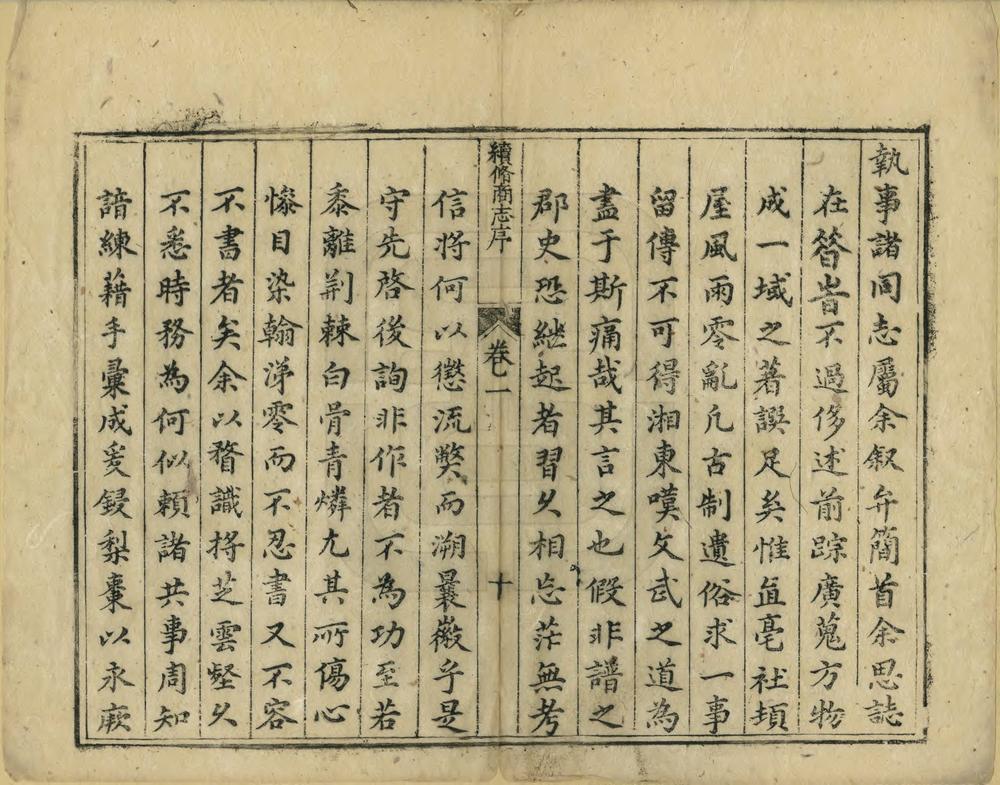 執事諸同志屬余叙弁簡首余思誌
在昝旹不過侈述前踪廣蒐方物
成一域之著譔足矣惟亳社頃
屋風雨零亂凡古制遺俗求一事
留傳不可得湘東嘆文武之道為
盡于斯痛哉其言之也假非譜之
郡史恐継起者習久相忘茫無考
續脩商志序
卷一
十
信將何以懲流獘而溯曩徽乎是
守先啓後詢非作者不為功至若
黍離荆棘白骨青燐尤其所傷心
慘目染翰涕零而不忍書又不容
不書者矣余以瞀識將芝雲壑久
不悉時務為何似賴諸共事周知
諳練藉手彙成爰鋟梨棗以永厥